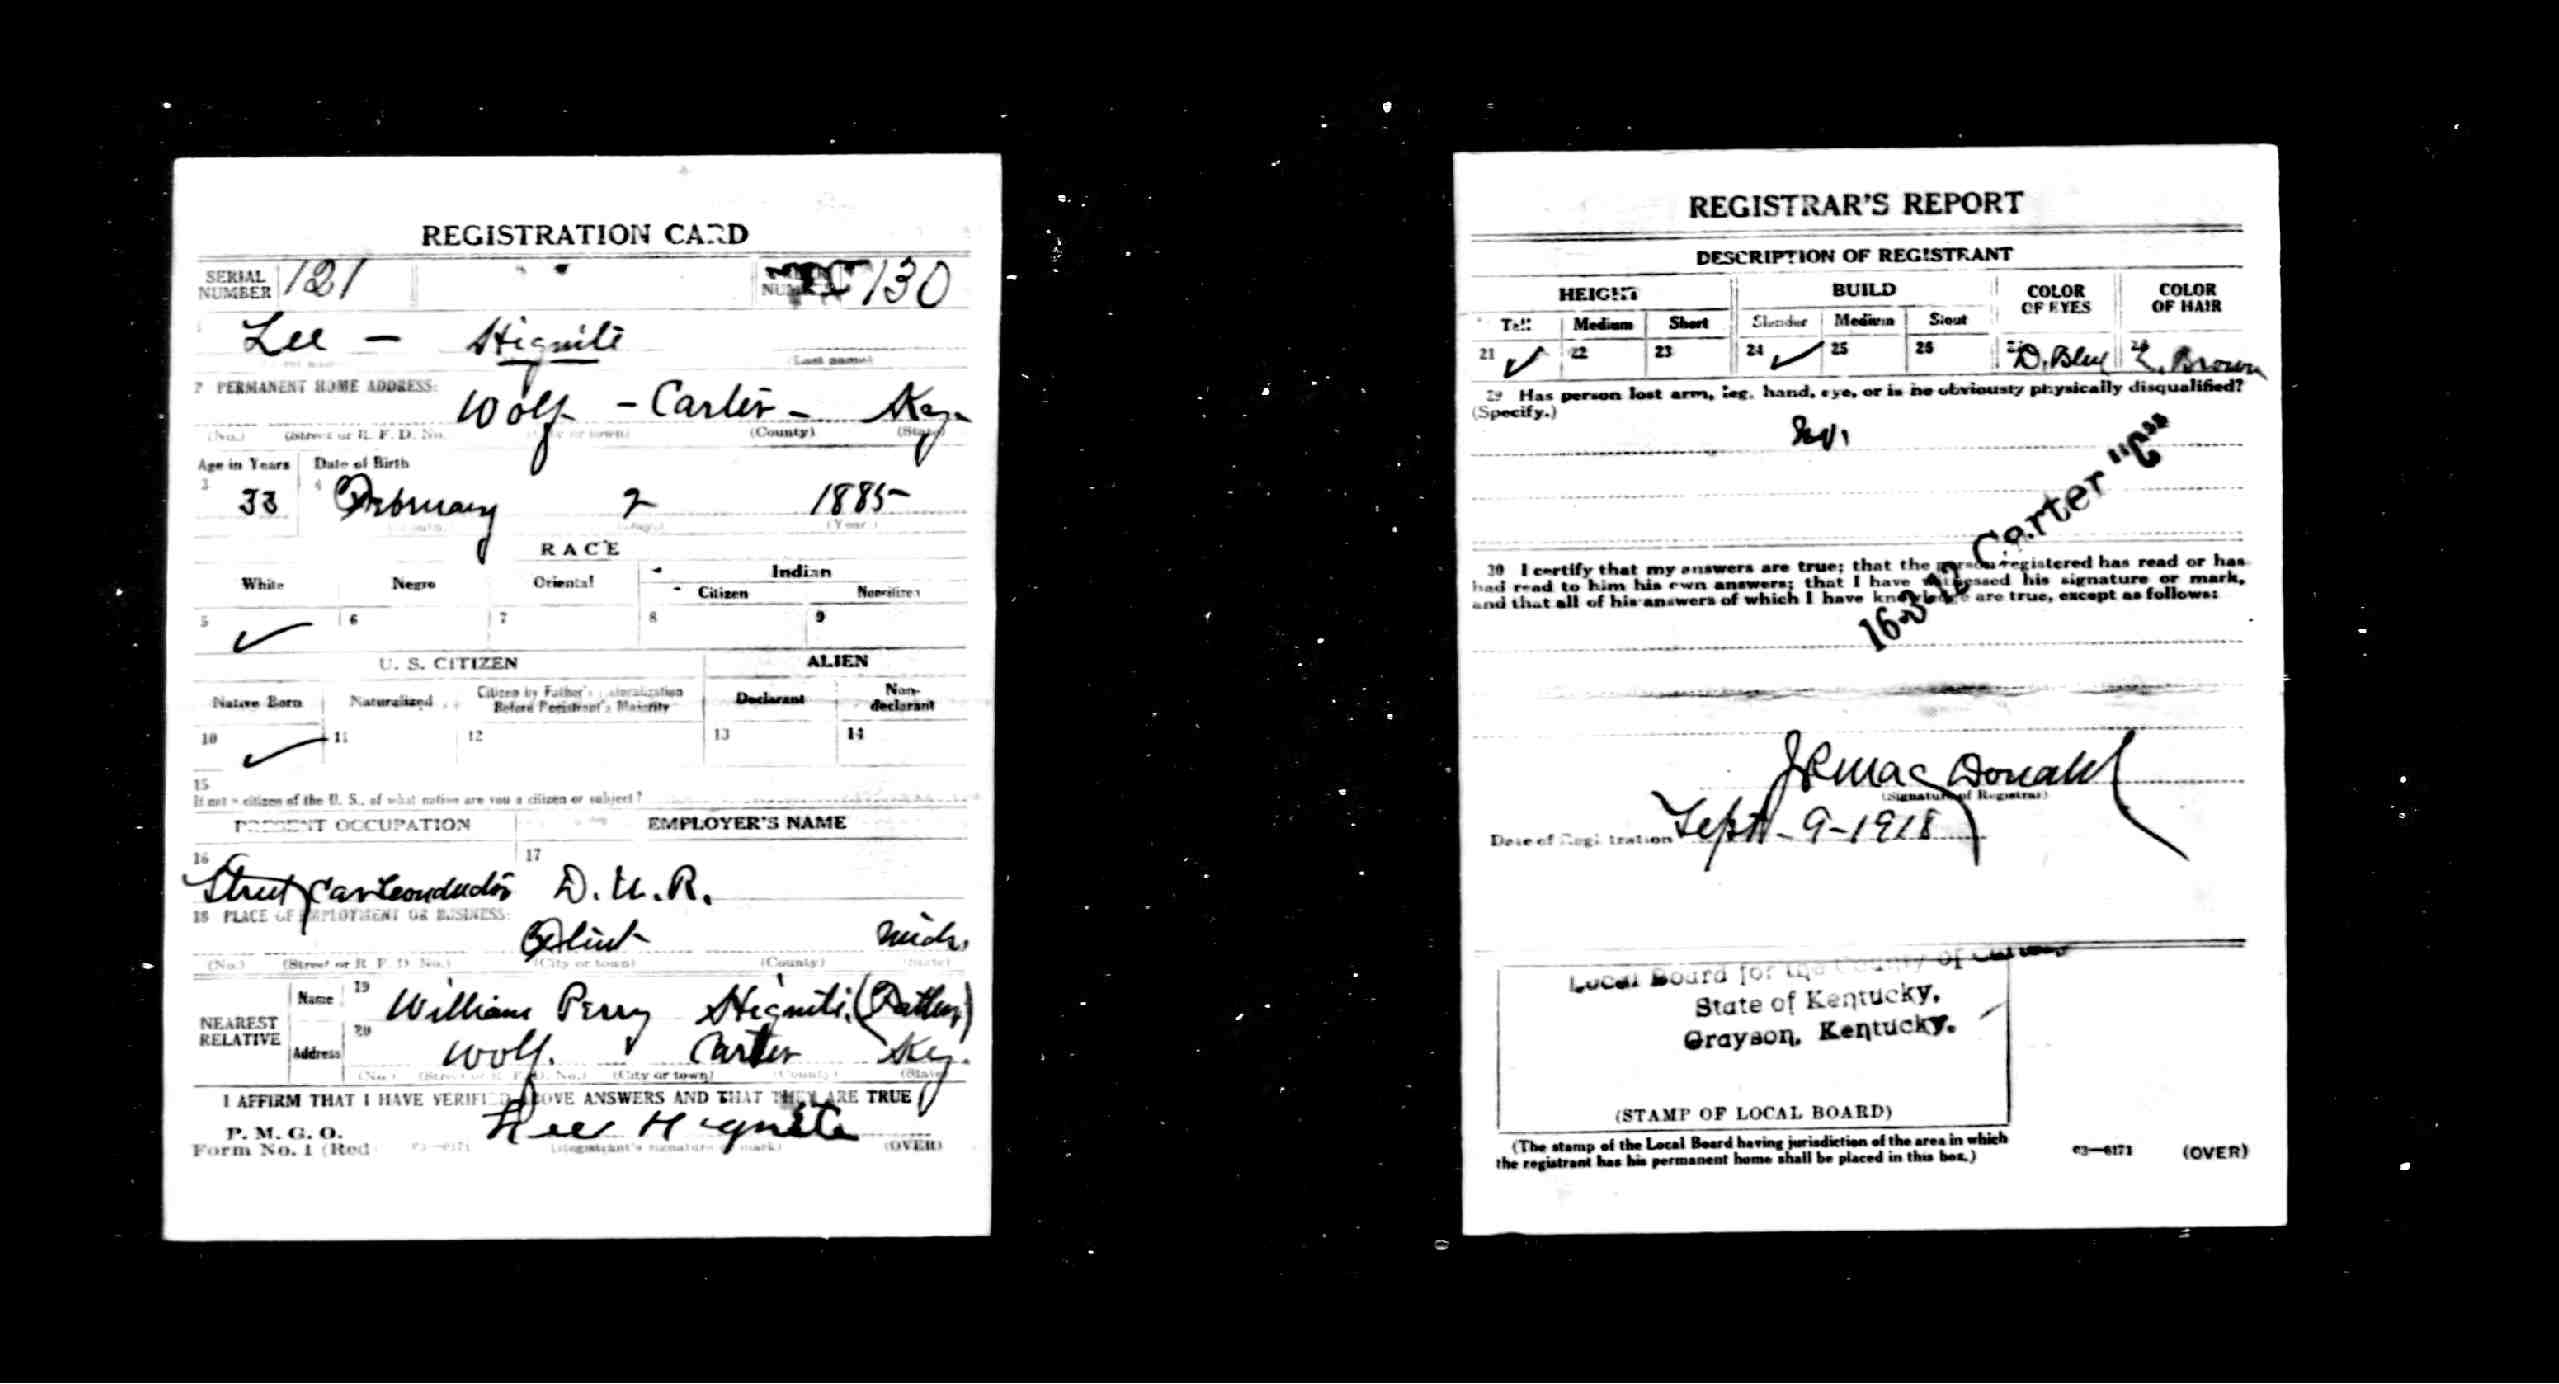 REGISTRATION CARD
SERIAL NUMBER 121 NUMBER 130
1 Lee - Hignite
(Last name)
2 PERMANENT HOME ADDRESS:
Wolf - Carter - Ky.
(No.) (Street or R. F. D. No.) (City or town) (County) (State)
Age in Years Date of Birth
3 33 4 February 2 1885
(Month) (Day) (Year)
RACE
White Negro Oriental Indian
Citizen Noncitizen
5 ✓ 6 7 8 9
U. S. CITIZEN ALIEN
Native Born Naturalized Citizen by Father's Naturalization Before Registrant's Majority Declarant Non-declarant
10 ✓ 11 12 13 14
15
If not a citizen of the U. S., of what nation are you a citizen or subject?
PRESENT OCCUPATION EMPLOYER'S NAME
16 17
Street Car Conductor D. U. R.
18 PLACE OF EMPLOYMENT OR BUSINESS:
Flint Mich.
(No.) (Street or R. F. D. No.) (City or town) (County) (State)
NEAREST RELATIVE Name 19 William Perry Hignite (Father)
Address 20 Wolf. Carter Ky.
(No.) (Street or R. F. D. No.) (City or town) (County) (State)
I AFFIRM THAT I HAVE VERIFIED ABOVE ANSWERS AND THAT THEY ARE TRUE
P. M. G. O.
Form No. 1 (Red) 03—6171 Lee Hignite
(Registrant's signature or mark) (OVER)
REGISTRAR'S REPORT
DESCRIPTION OF REGISTRANT
HEIGHT BUILD COLOR OF EYES COLOR OF HAIR
Tall Medium Short Slender Medium Stout
21 ✓ 22 23 24 ✓ 25 26 27 D. Blue 28 L. Brown
29 Has person lost arm, leg, hand, eye, or is he obviously physically disqualified?
(Specify.)
No.
16-3-12 Carter "C"
30 I certify that my answers are true; that the person registered has read or has
had read to him his own answers; that I have witnessed his signature or mark,
and that all of his answers of which I have knowledge are true, except as follows:
J R MacDonald
(Signature of Registrar)
Date of Registration Sept - 9 - 1918
Local Board for the County of Carter
State of Kentucky,
Grayson, Kentucky.
(STAMP OF LOCAL BOARD)
(The stamp of the Local Board having jurisdiction of the area in which
the registrant has his permanent home shall be placed in this box.)
03—6171 (OVER)